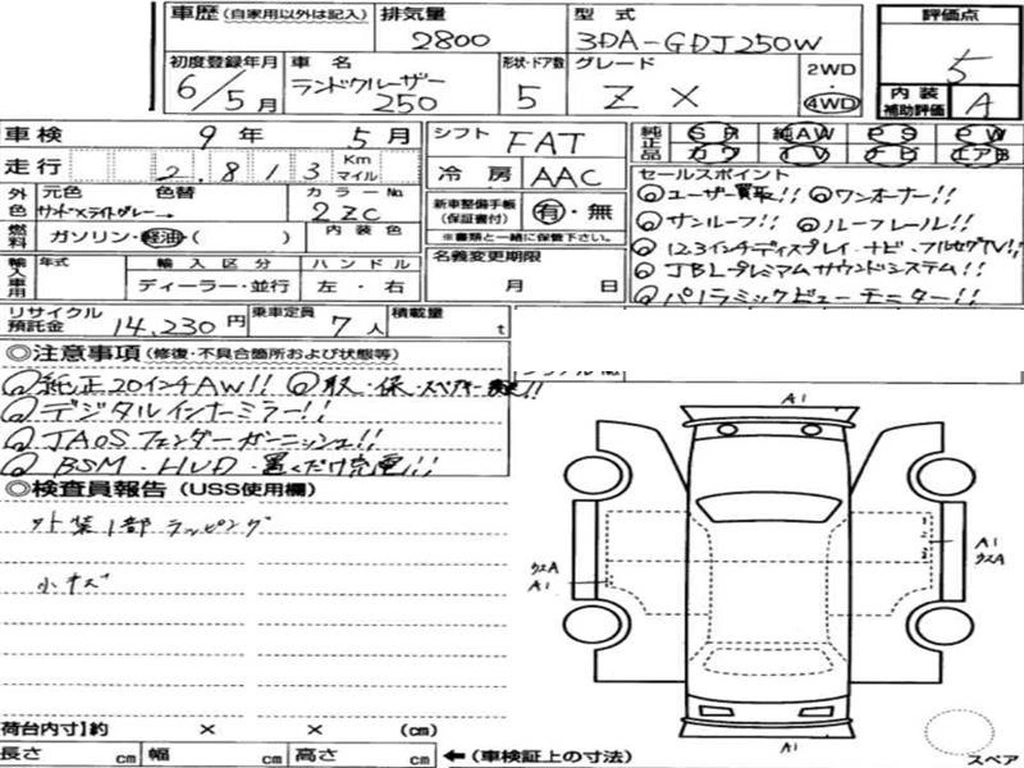 車歴(自家用以外は記入) 排気量 2800 型式 3DA-GDJ250W 評価点 5
初度登録年月 6/5月 車名 ランドクルーザー 250 形状・ドア数 5 グレード ZX 2WD・4WD 内装補助評価 A
車検 9年 5月 シフト FAT 純正品 SR 純AW PS PW
走行 2,813 Km マイル 冷房 AAC カワ TV ナビ エアB
外色 元色 色替 カラーNo. 2ZC
サンド×ライトグレー→ 内装色
燃料 ガソリン・軽油・( )
新車整備手帳(保証書付) 有・無
※書類と一緒に保管下さい。
セールスポイント
ユーザー買取!! ワンオーナー!!
サンルーフ!! ルーフレール!!
12.3インチディスプレイ・ナビ・フルセグTV!!
JBLプレミアムサウンドシステム!!
パノラミックビューモニター!!
輸入車用 年式 輸入区分 ハンドル
ディーラー・並行 左・右
名義変更期限
月 日
リサイクル預託金 14,230円 乗車定員 7人 積載量 t
◎注意事項(修復・不具合箇所および状態等)
純正20インチAW!! 取・保・スペアキー!!
デジタルインナーミラー!!
JAOSフェンダーガーニッシュ!!
BSM・HUD・置くだけ充電!!
◎検査員報告(USS使用欄)
外装1部ラッピング
小キズ
A1
A1
クエA
クエA
A1
A1
荷台内寸約 × × (cm)
長さ cm 幅 cm 高さ cm ←(車検証上の寸法)
スペア